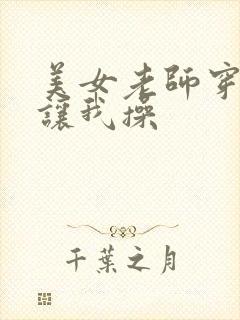 美女老師穿
讓我操
千葉之月